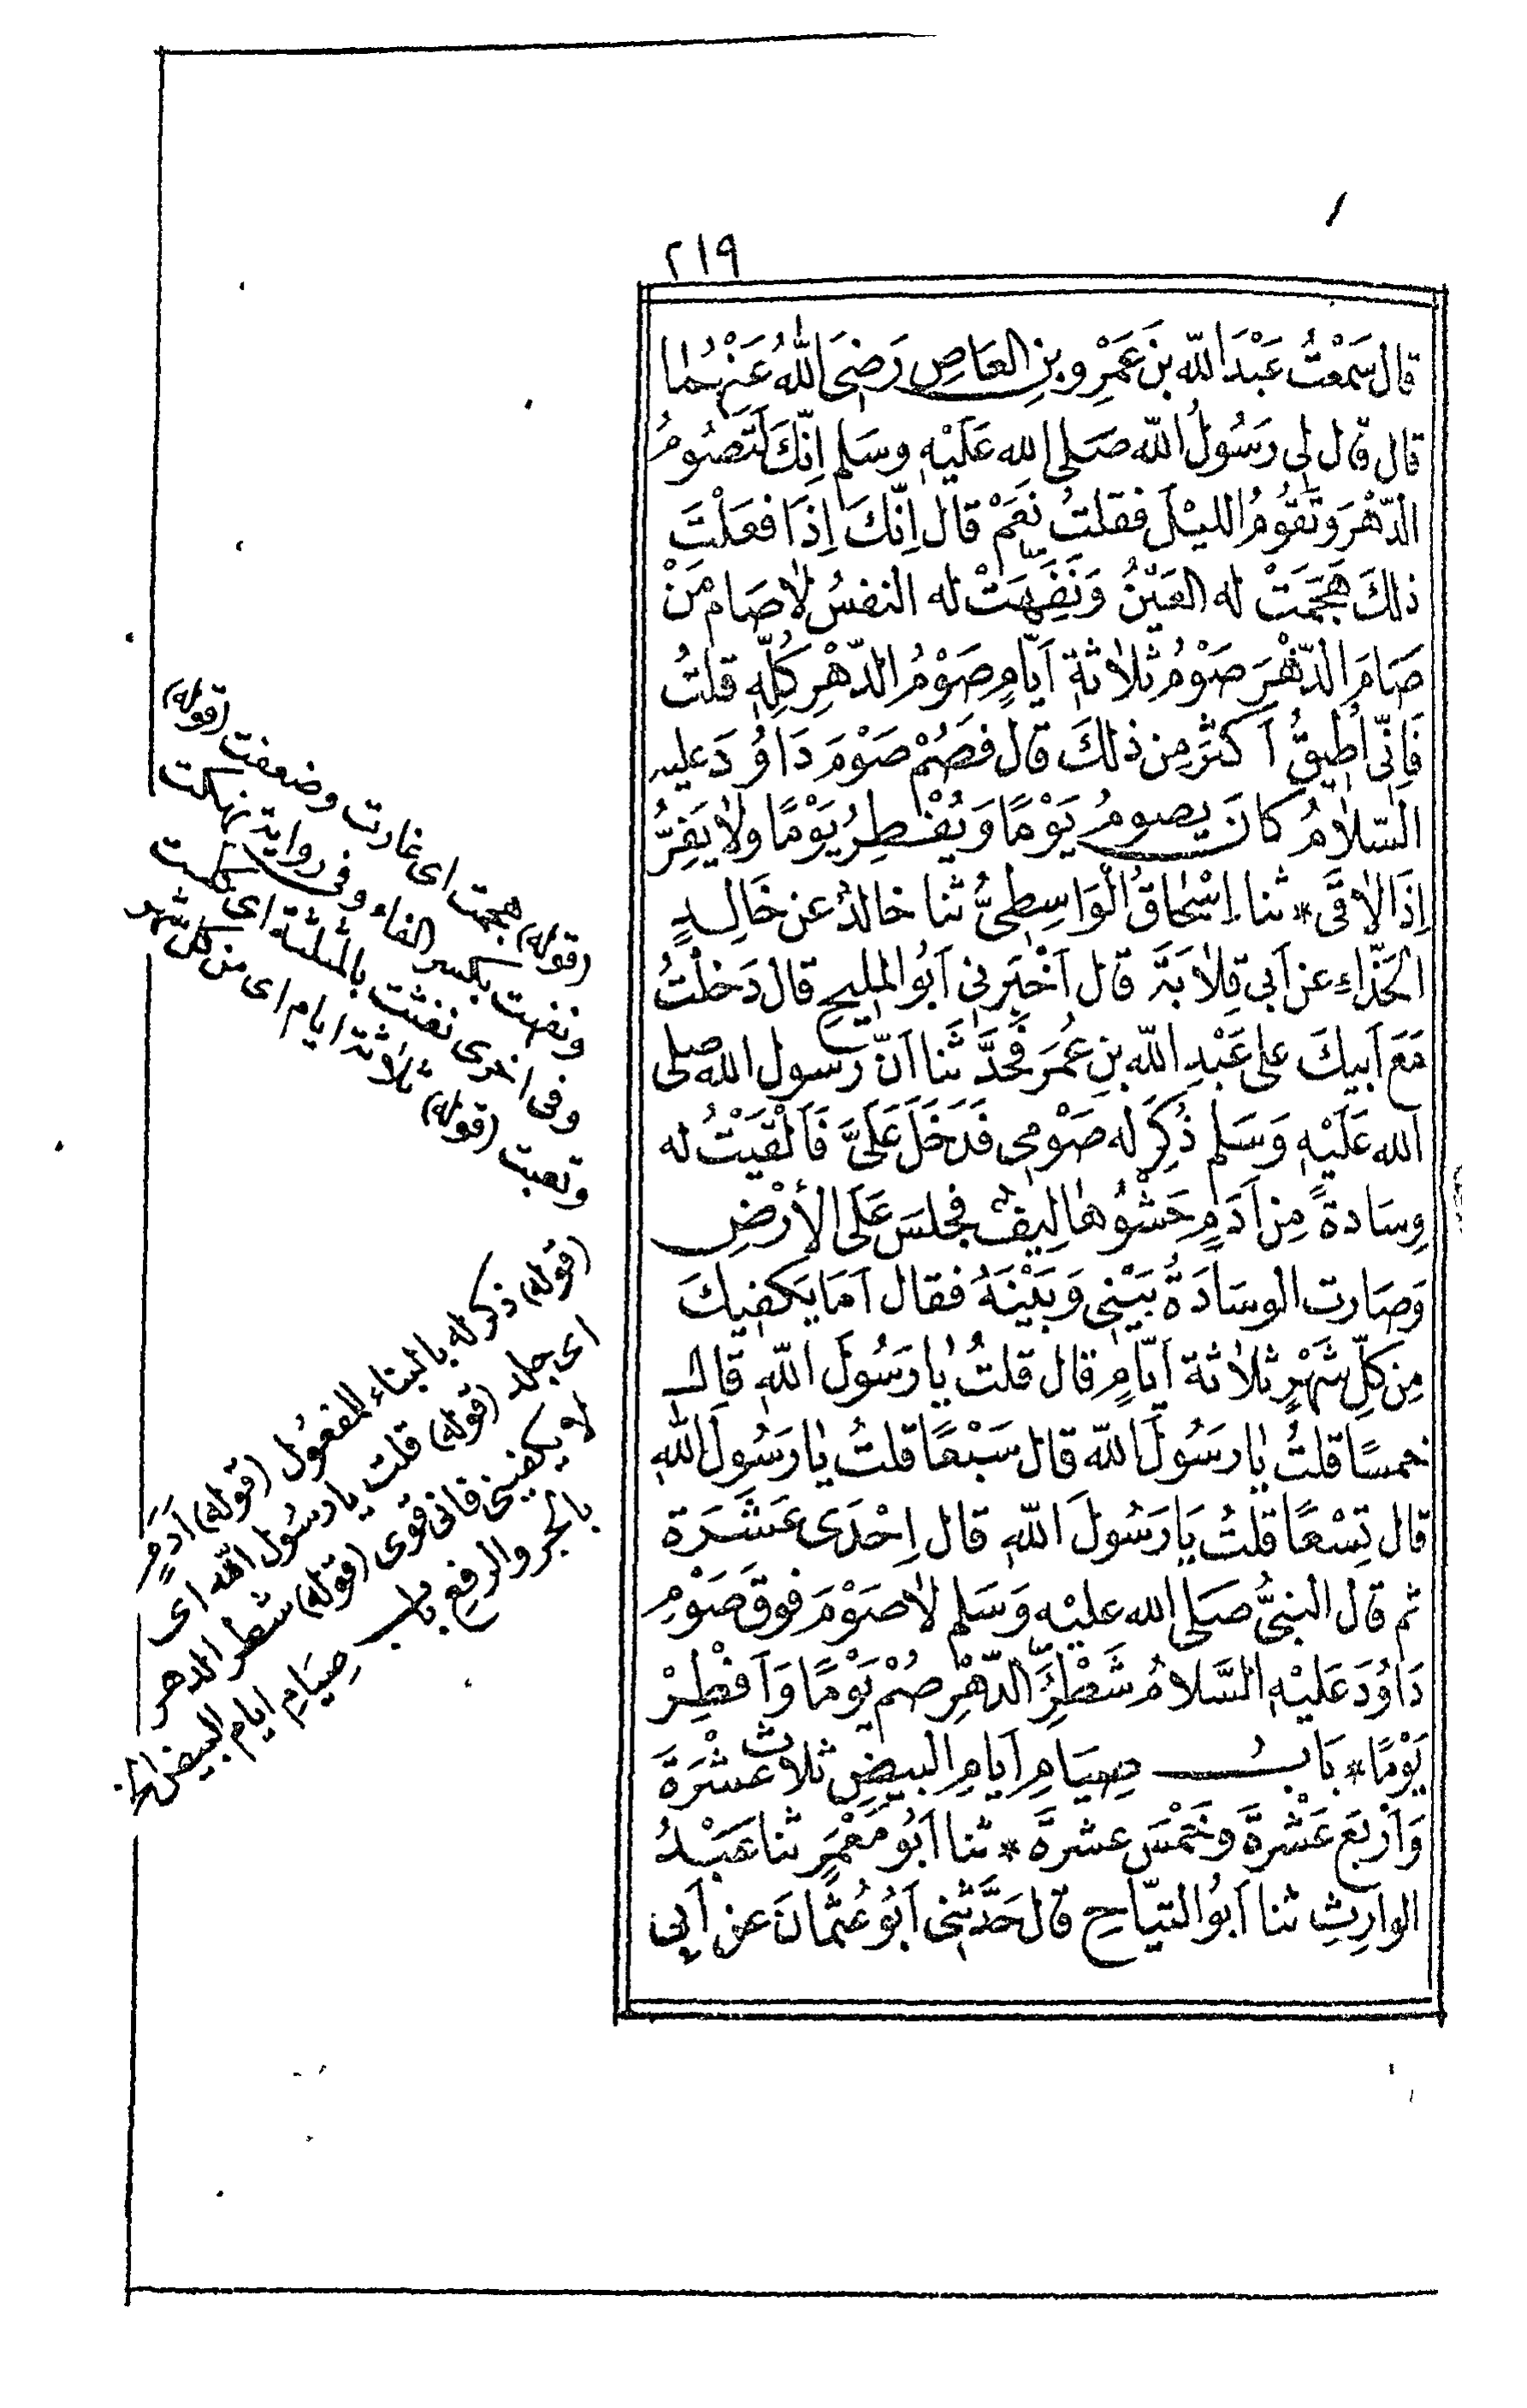 ٢١٩
قال سَمِعْتُ عَبْدَ اللّٰه بنَ عَمْرِو بنِ العَاصِ رَضِىَ اللّٰهُ عَنْهُمَا
قال قال لى رَسُولُ اللّٰه صَلى الله عَلَيْهِ وسَلم اِنَّكَ لَتَصُومُ
الدَّهْرَ وَتَقُومُ الليْلَ فقلتُ نَعَمْ قال اِنَّكَ اِذَا فعَلْتَ
ذلكَ هَجَمَتْ له العَيْنُ وَنَفِهَتْ له النفسُ لاصَام مَنْ
صَامَ الدَّهْرَ صَوْمُ ثلاثةِ اَيَّامٍ صَوْمُ الدَّهْرِ كُلِّهِ قلتُ
فَاِنِّى اُطِيقُ اَكثرَ مِن ذلكَ قال فصُمْ صَوْمَ دَاوُدَ عليه
السّلامُ كانَ يصومُ يَوْمًا وَيُفْطِرُ يَوْمًا ولا يَفِرُّ
اِذَا لاقَى * ثنا اِسْحَاقُ الْوَاسِطِىُّ ثنا خالدٌ عن خَالِدٍ
الحَذَّاءِ عن اَبى قِلابَةَ قال اَخْبَرنى اَبُو المليحِ قال دَخلْتُ
مَعَ اَبيكَ على عَبْدِ اللّٰه بنِ عُمَرَ فَحَدَّثنا اَنَّ رسول الله صلى
الله عَلَيْهِ وَسَلم ذُكِرَ له صَوْمِى فَدَخَلَ عَلَىَّ فَاَلْقَيْتُ له
وِسَادةً مِن اَدَمٍ حَشْوُها لِيفٌ فجلسَ عَلَى الأَرْضِ
وَصَارت الوسَادَةُ بَيْنِى وَبَيْنَهُ فقال اَمَا يَكفِيكَ
مِن كلِّ شَهْرٍ ثلاثة اَيَّامٍ قال قلتُ يا رَسُولَ اللّٰهِ قال
خمسًا قلتُ يا رسُولَ اللّٰه قال سَبْعًا قلتُ يا رَسُولَ اللّٰهِ
قال تِسْعًا قلتُ يَا رَسُولَ اللّٰهِ قال اِحْدَى عَشَرَة
ثم قال النبىُّ صَلى الله عليْه وَسَلم لاصَوْمَ فوقَ صَوْمِ
دَاوُدَ عَليْهِ السَّلامُ شَطْرَِ الدَّهْرِ صُمْ يَوْمًا وَاَفْطِرْ
يَوْمًا * بَابُ صِيَامِ اَيامِ البيضِ ثلاث عَشْرَةَ
وَاَرْبَعَ عَشْرَةَ وخَمْسَ عشرةَ * ثنا اَبُو مَعْمَرٍ ثنا عَبْدُ
الوارِثِ ثنا اَبُو التيّاحِ قال حَدَّثنِى اَبُو عُثمَانَ عن اَبى
(قوله) هجمت اى غارت وضعفت (قوله)
ونفهت بكسر الفاء وفى رواية نهكت
وفى اخرى نفثت بالمثلثة اى كلت
وتعبت (قوله) ثلاثة ايام اى من كل شهر
(قوله) ذكر له بالبناء للمفعول (قوله) اَدَمٍ
اى جلد (قوله) قلت يا رسُول اللّٰه اى
لا يكفينى فانى قوى (قوله) شطر الدهر
بالجر والرفع باب صِيَامِ ايام البيض الخ